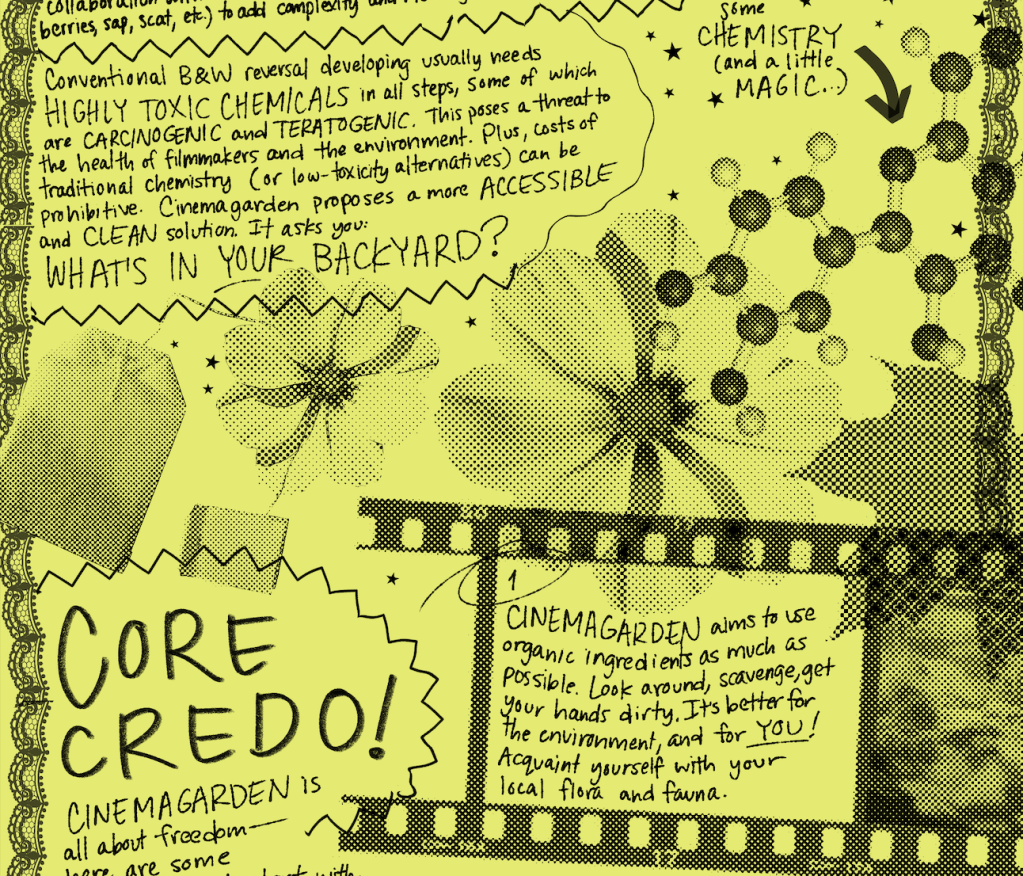 collaboration
berries, sap, scat, etc.) to add complexity and
Conventional B&W reversal developing usually needs
HIGHLY TOXIC CHEMICALS in all steps, some of which
are CARCINOGENIC and TERATOGENIC. This poses a threat to
the health of filmmakers and the environment. Plus, costs of
traditional chemistry (or low-toxicity alternatives) can be
prohibitive. Cinemagarden proposes a more ACCESSIBLE
and CLEAN solution. It asks you:
WHAT'S IN YOUR BACKYARD?
some
CHEMISTRY
(and a little
MAGIC...)
CORE
CREDO!
CINEMAGARDEN is
all about freedom—
here are some
1
CINEMAGARDEN aims to use
organic ingredients as much as
possible. Look around, scavenge, get
your hands dirty. It's better for
the environment, and for YOU!
Acquaint yourself with your
local flora and fauna.